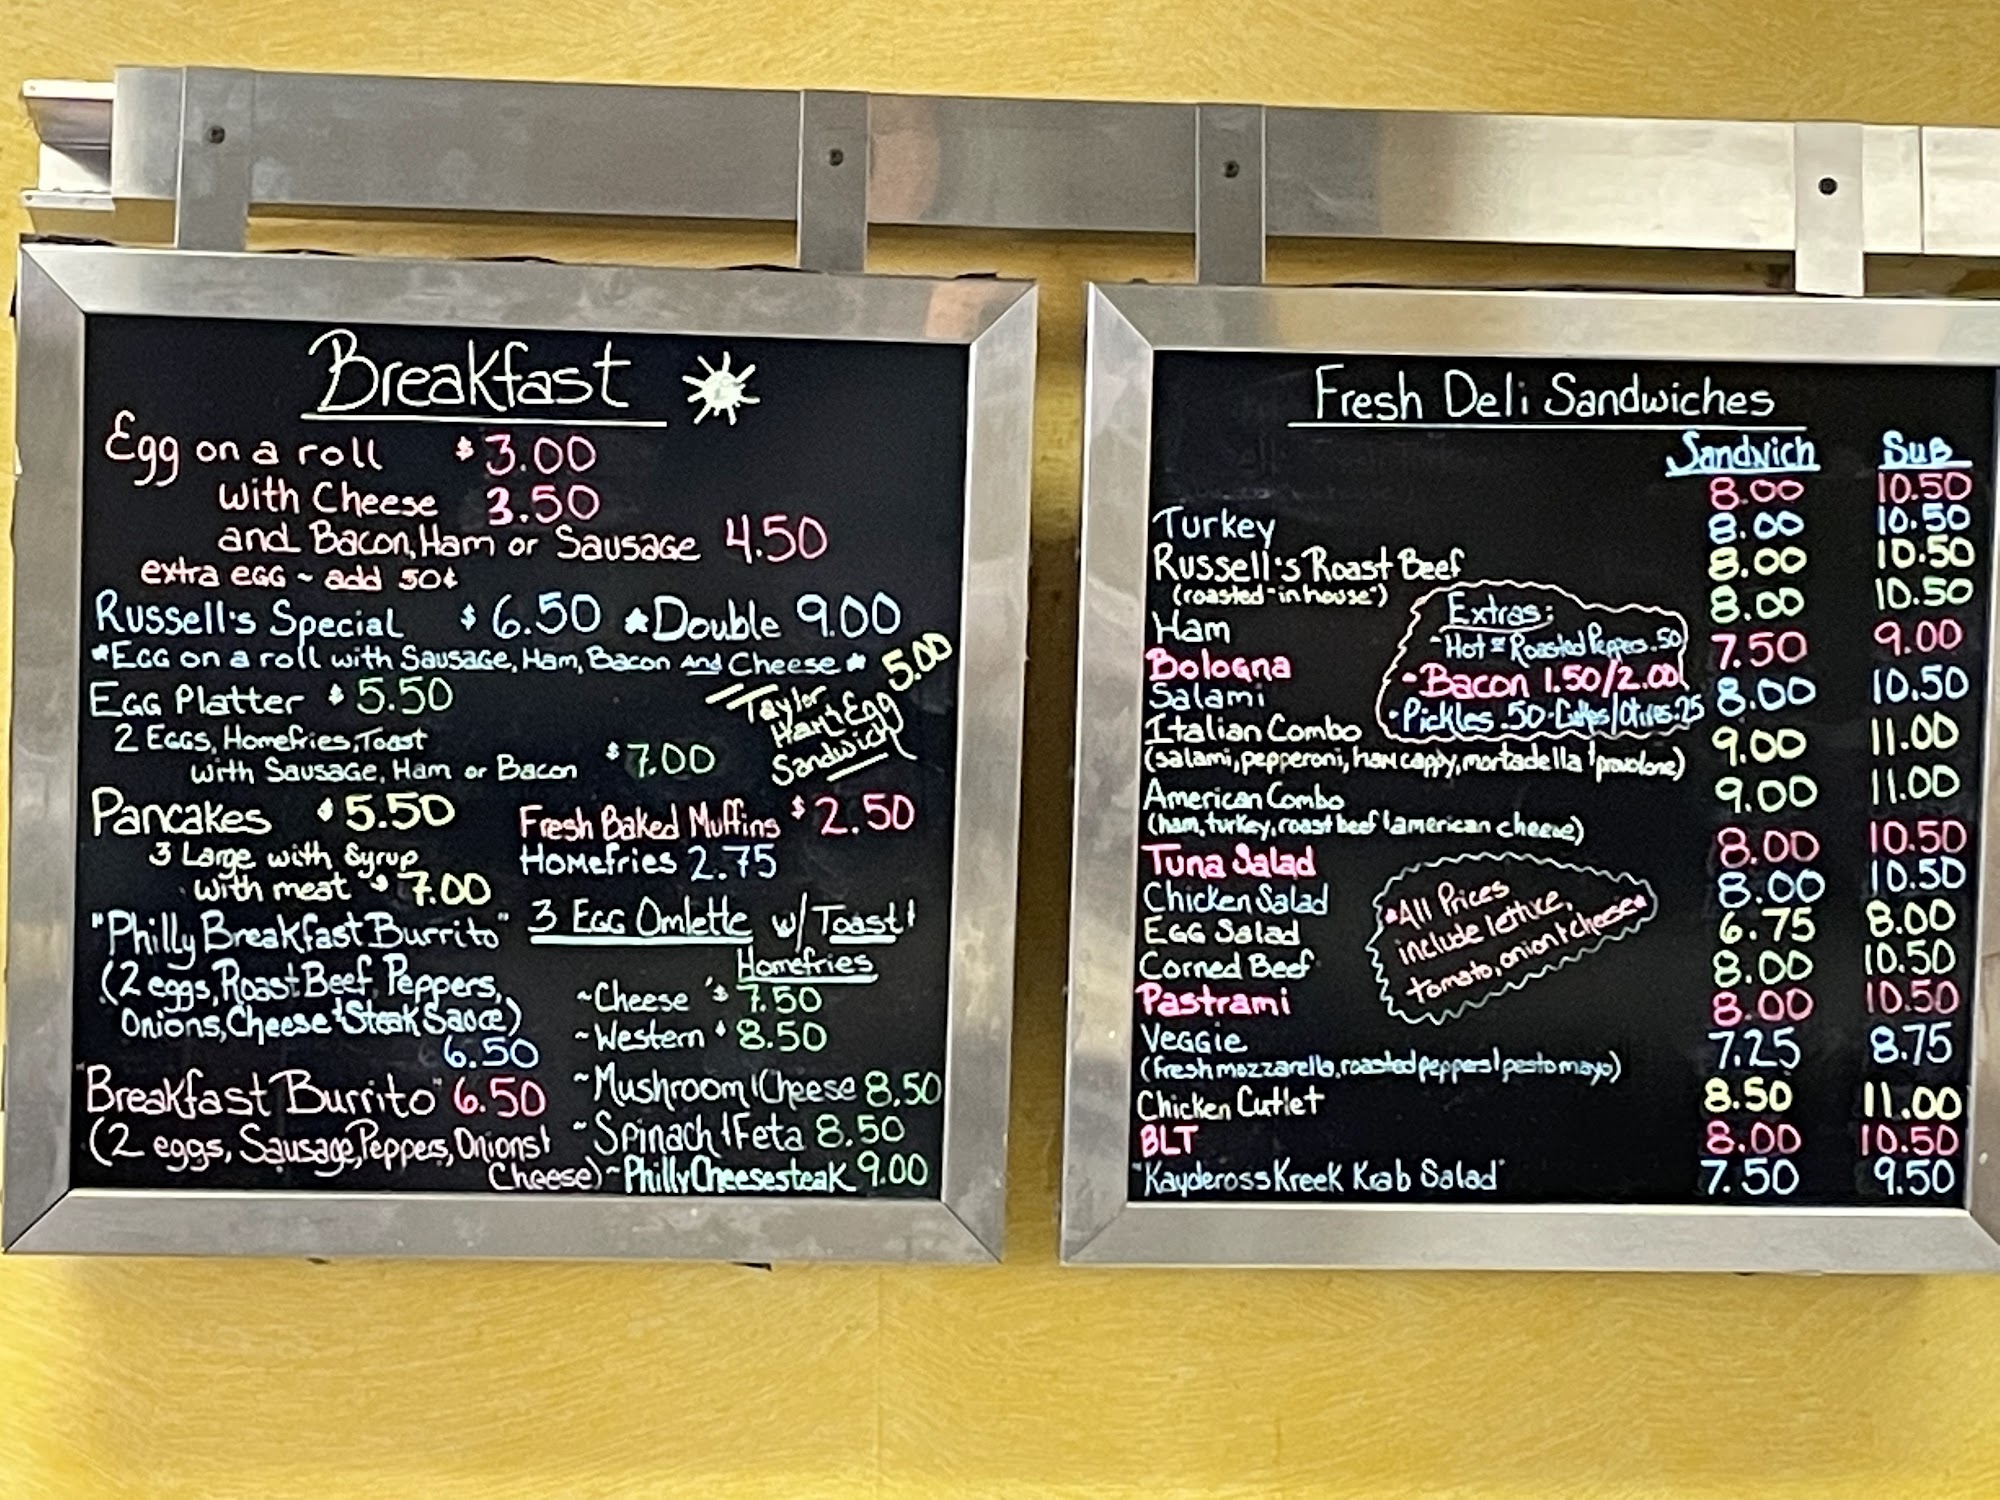 Breakfast
Egg on a roll $3.00
with Cheese 3.50
and Bacon, Ham or Sausage 4.50
extra egg ~ add 50¢
Russell's Special $6.50 *Double 9.00
*Egg on a roll with Sausage, Ham, Bacon And Cheese*
Egg Platter $5.50
2 Eggs, Homefries, Toast
with Sausage, Ham or Bacon $7.00
Taylor
Ham & Egg
Sandwich
5.00
Pancakes $5.50
3 Large with Syrup
with meat $7.00
Fresh Baked Muffins $2.50
Homefries 2.75
"Philly Breakfast Burrito"
(2 eggs, Roast Beef, Peppers,
Onions, Cheese & Steak Sauce)
6.50
"Breakfast Burrito" 6.50
(2 eggs, Sausage, Peppers, Onions &
Cheese)
3 Egg Omlette w/ Toast &
Homefries
~Cheese $7.50
~Western $8.50
~Mushroom & Cheese 8.50
~Spinach & Feta 8.50
~Philly Cheesesteak 9.00
Fresh Deli Sandwiches
Sandwich Sub
8.00 10.50
Turkey 8.00 10.50
Russell's Roast Beef 8.00 10.50
(roasted-in house)
Ham 8.00 10.50
Bologna 7.50 9.00
Salami 8.00 10.50
Italian Combo 9.00 11.00
(salami, pepperoni, ham cappy, mortadella & provolone)
American Combo 9.00 11.00
(ham, turkey, roast beef & american cheese)
Tuna Salad 8.00 10.50
Chicken Salad 8.00 10.50
Egg Salad 6.75 8.00
Corned Beef 8.00 10.50
Pastrami 8.00 10.50
Veggie 7.25 8.75
(fresh mozzarella, roasted peppers & pesto mayo)
Chicken Cutlet 8.50 11.00
BLT 8.00 10.50
"Kaydeross Kreek Krab Salad" 7.50 9.50
Extras:
-Hot Roasted Peppers .50
-Bacon 1.50/2.00
-Pickles .50 .25
*All Prices
include lettuce,
tomato, onion & cheese*